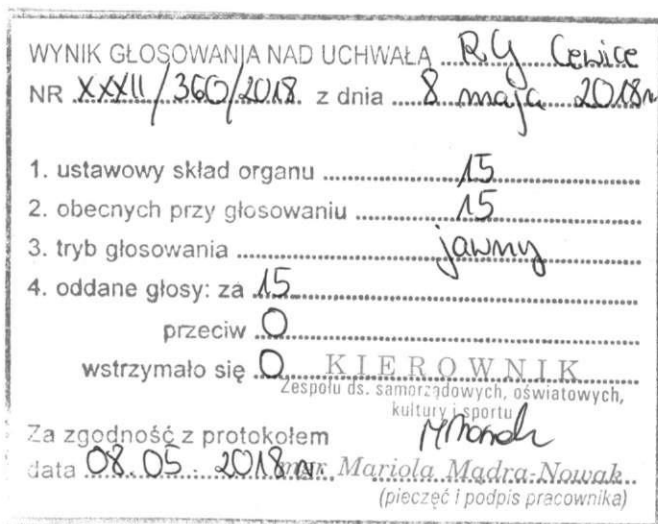 WYNIK GŁOSOWANIA NAD UCHWAŁĄ RG Cewice
NR XXXII/360/2018. z dnia 8 maja 2018r
1. ustawowy skład organu 15
2. obecnych przy głosowaniu 15
3. tryb głosowania jawny
4. oddane głosy: za 15
przeciw 0
wstrzymało się 0 KIEROWNIK
Zespołu ds. samorządowych, oświatowych,
kultury i sportu
Za zgodność z protokołem
data 08.05.2018r. mgr Mariola Mądra-Nowak
(pieczęć i podpis pracownika)